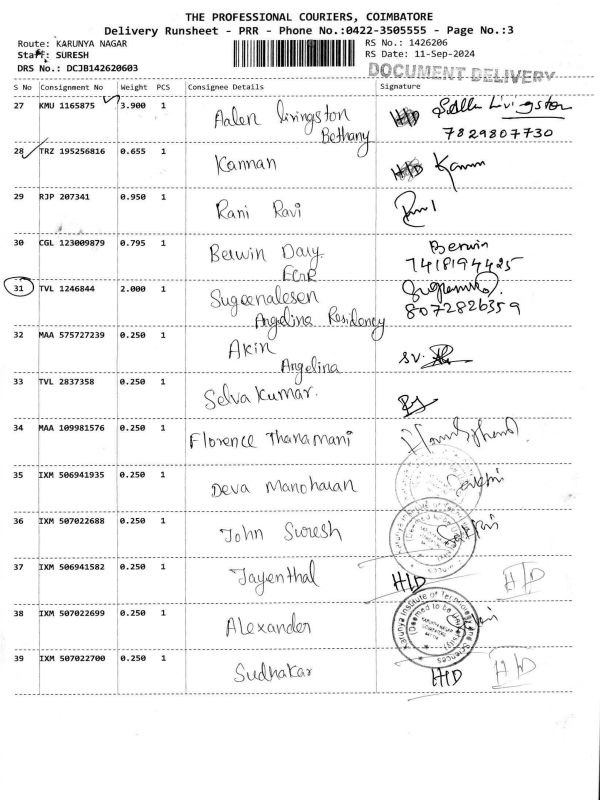 THE PROFESSIONAL COURIERS, COIMBATORE
Delivery Runsheet - PRR - Phone No.:0422-3505555 - Page No.:3
Route: KARUNYA NAGAR RS No.: 1426206
Staff: SURESH RS Date: 11-Sep-2024
DRS No.: DCJB142620603 DOCUMENT DELIVERY
S No Consignment No Weight PCS Consignee Details Signature
27 KMU 1165875 3.900 1 Aalen Livingston Livingston
Bethany 7829807730
28 TRZ 195256816 0.655 1 Kannan H/D
29 RJP 207341 0.950 1 Rani Ravi
30 CGL 123009879 0.795 1 Berwin Dary Berwin
7418194425
31 TVL 1246844 2.000 1 Sugeenalesen
Angelina Residency 8072826359
32 MAA 575727239 0.250 1 Akin SV.
Angelina
33 TVL 2837358 0.250 1 Selva Kumar.
34 MAA 109981576 0.250 1 Florence Thanamani
35 IXM 506941935 0.250 1 Deva Manoharan
36 IXM 507022688 0.250 1 John Suresh
37 IXM 506941582 0.250 1 Jayenthal H/D H/D
38 IXM 507022699 0.250 1 Alexander
Karunya Institute of Technology and Sciences
(Deemed to be University)
39 IXM 507022700 0.250 1 Sudhakar H/D H/D